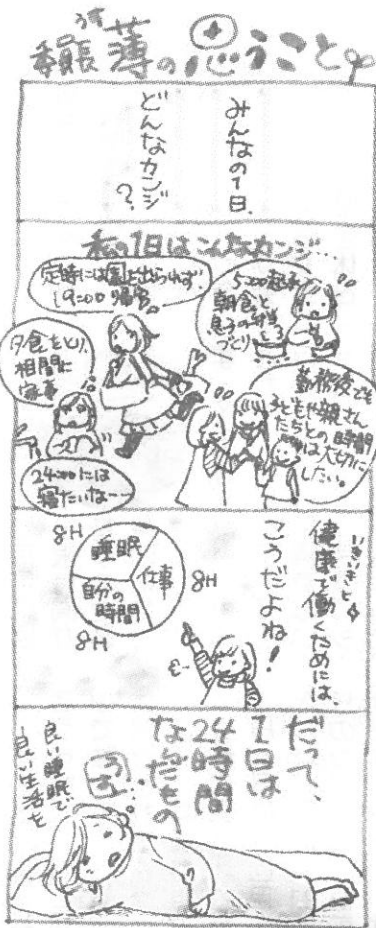 うす
委員長 薄の思うこと
みんなの1日、
どんなカンジ
?
私の1日はこんなカンジ…
5:00起床
朝食と
息子の弁当
づくり
定時には園を出られず
19:00 帰宅
勤務後でも
子どもや親さん
たちとの時間
は大切に
したい。
夕食をとり、
相間に
家事
24:00には
寝たいな…
いきいきと
健康で働くためには、
こうだよね!
8H
睡眠
仕事
8H
自分の
時間
8H
だって、
1日は
24時間
なんだもの
良い睡眠で
良い生活を